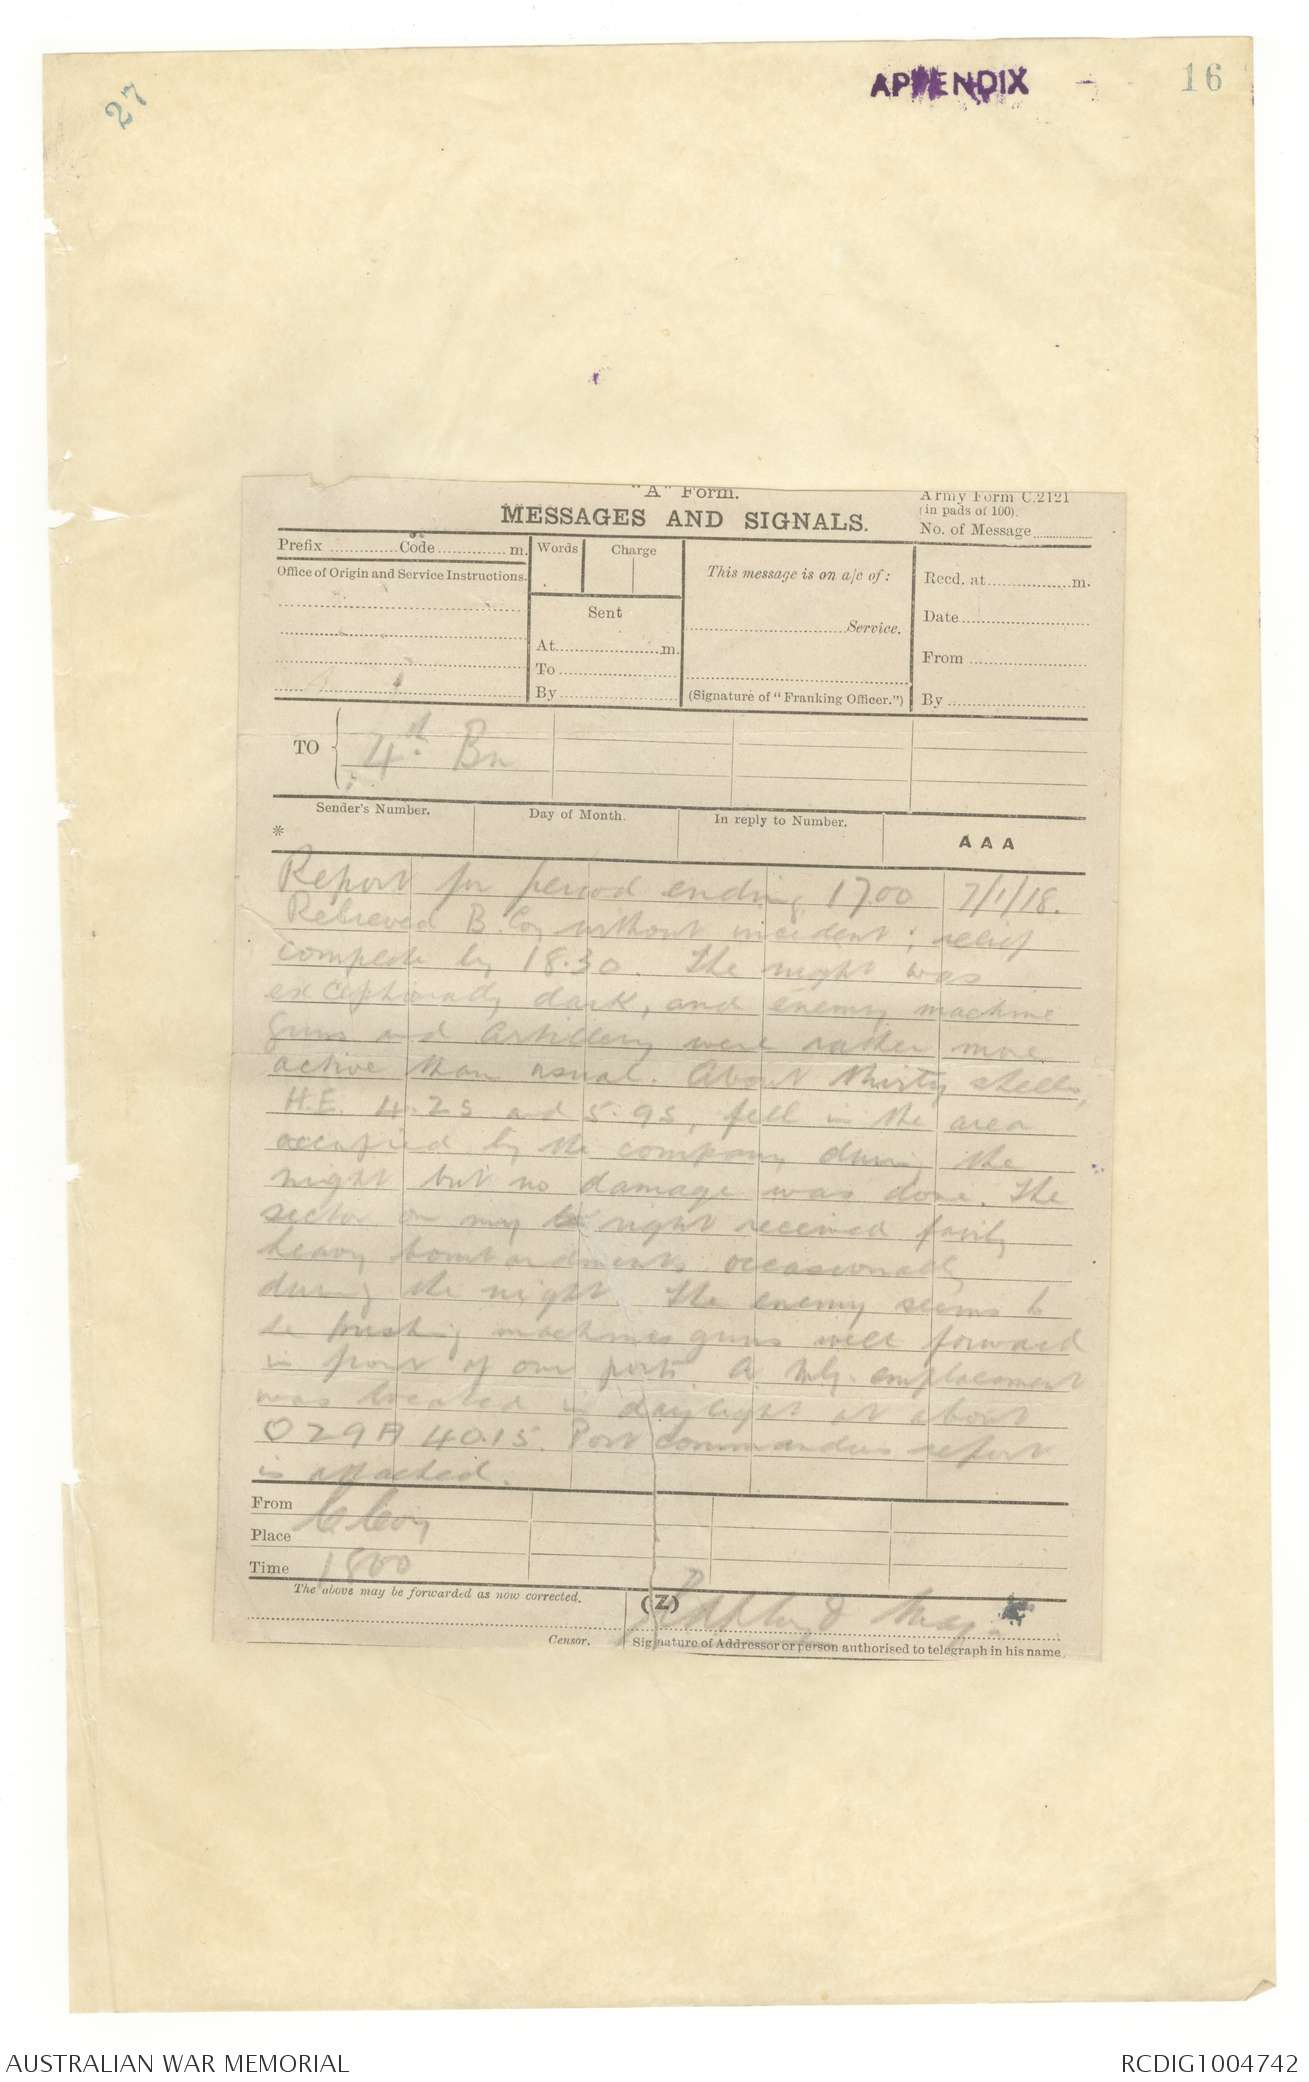 27
APPENDIX - 16
"A" Form.
MESSAGES AND SIGNALS.
Army Form C.2121
(in pads of 100).
No. of Message
Prefix Code m.
Office of Origin and Service Instructions.
Words Charge
Sent
At m.
To
By
This message is on a/c of:
Service.
(Signature of "Franking Officer.")
Recd. at m.
Date
From
By
TO 4th. Bn
Sender's Number. Day of Month. In reply to Number. AAA
*
Report for period ending 1700 7/1/18.
Relieved B. Coy without incident; relief
complete by 18.30. The night was
exceptionally dark, and enemy machine
guns and artillery were rather more
active than usual. About thirty shells,
H.E. 4.2s and 5.9s, fell in the area
occupied by the company during the
night but no damage was done. The
sector on my right received fairly
heavy bombardments occasionally
during the night. The enemy seems to
be pushing machines guns well forward
in front of our posts. A M.G. emplacement
was located in daylight at about
O29A 40.15. Post commanders report
is attached.
From C Coy
Place
Time 1800
The above may be forwarded as now corrected.
(Z)
Major
Censor.
Signature of Addressor or person authorised to telegraph in his name
AUSTRALIAN WAR MEMORIAL
RCDIG1004742